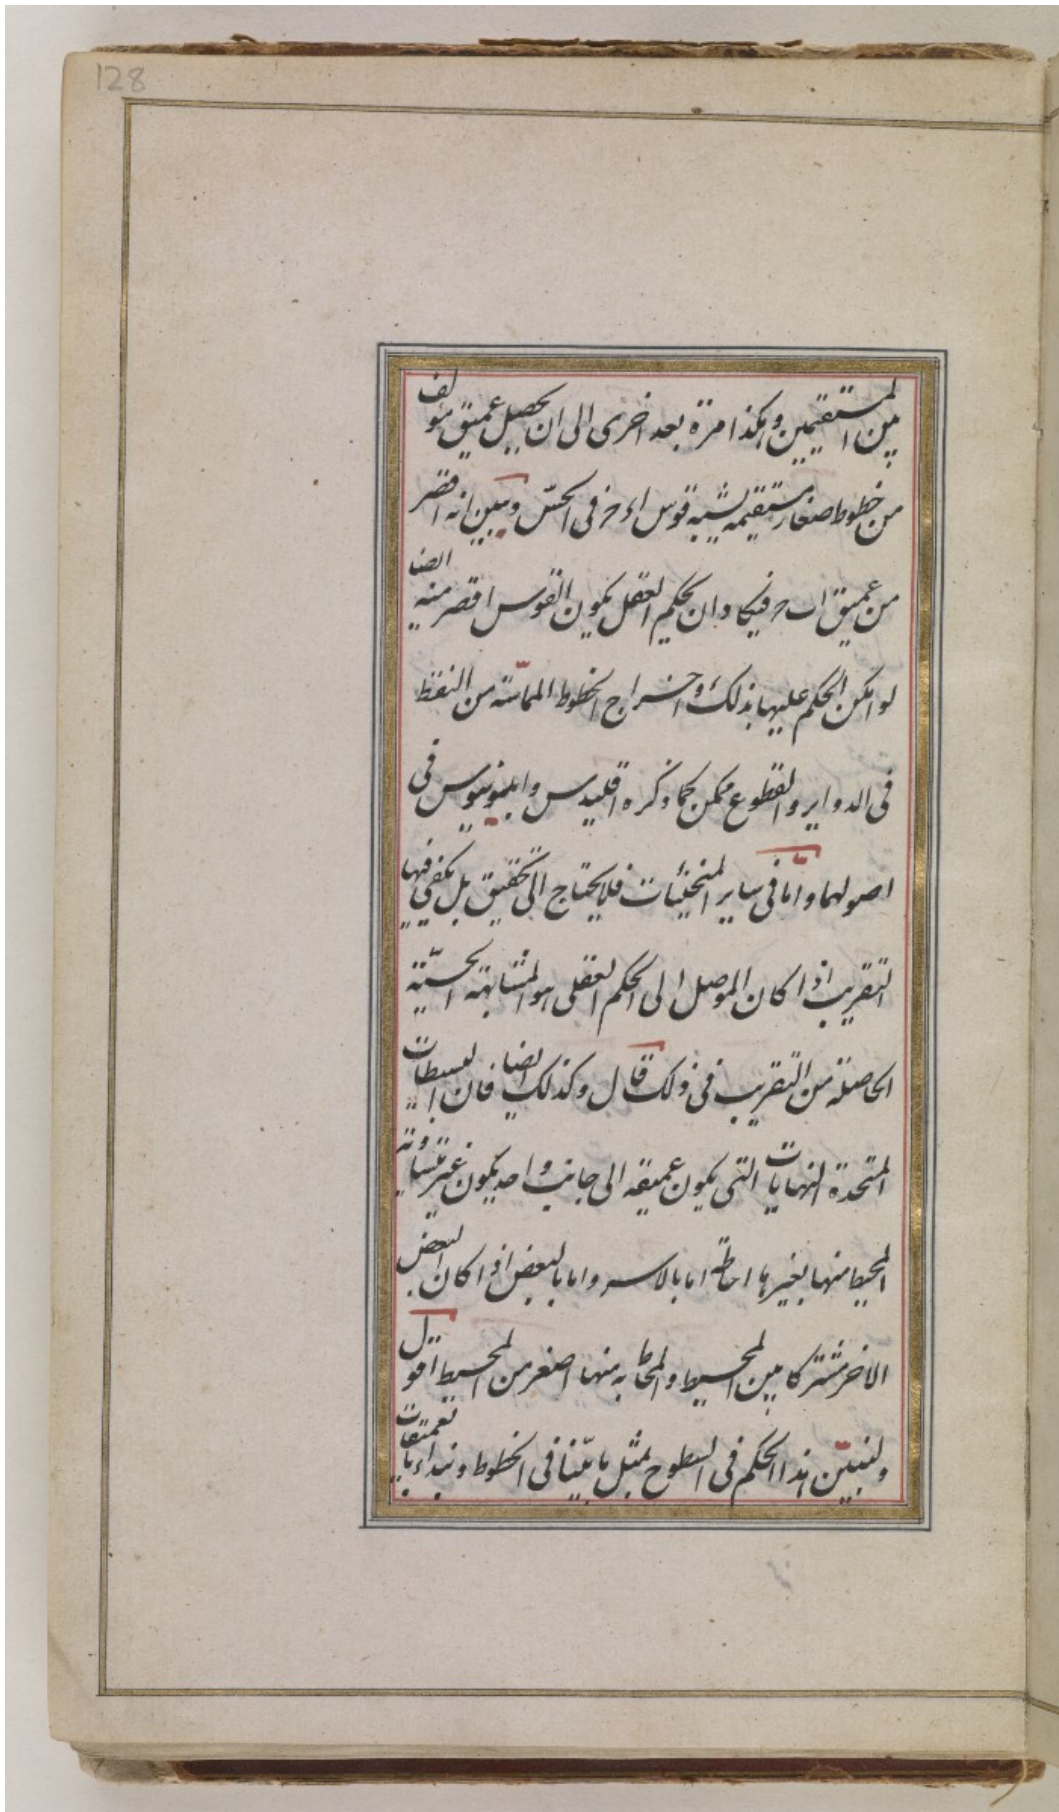 128
من المستقيمين وهكذا مرة بعد اخرى الى ان يحصل عميق مؤلف
من خطوط صغار مستقيمه يشبه قوس ا ء ح فى الحسّ وتبين انه اقصر
من عميق ا ب ح فيكا دان يحكم العقل بكون القوس اقصر منه ايضا
لو امكن الحكم عليها بذلك واخراج الخطوط المماسّة من النقط
فى الدواير والقطوع ممكن كما ذكره اقليدس وابلنونيوس فى
اصولهما وامّا فى ساير المنحنيات فلا يحتاج الى تحقيق بل يكفى فيها
التقريب اذا كان الموصل الى الحكم العقلى هو المشابهة الحسّية
الحاصلة من التقريب فى ذلك قال وكذلك ايضا فان البسيطات
المتحدة النهايات التى يكون عميقه الى جانب واحد يكون غير متساوية
المحيط منها بغيرها احاطة اما بالاسر واما بالبعض اذا كان البعض
الاخر مشتركا بين المحيط والمحاط به منها اصغر من المحيط اقول
ولنبيّن هذا الحكم فى السطوح بمثل ما بيّنا فى الخطوط ونبداء